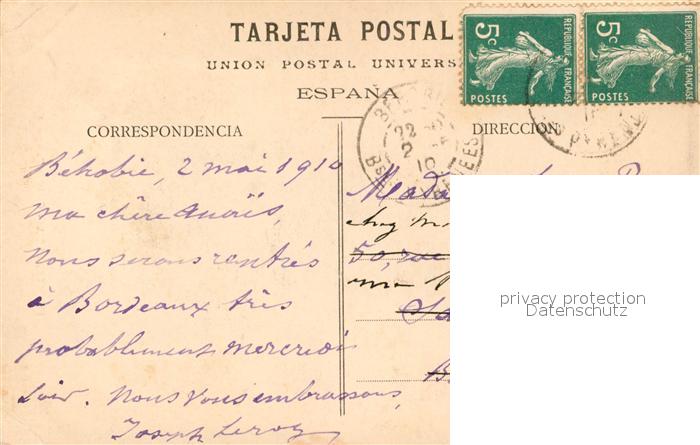 TARJETA POSTAL
UNION POSTAL UNIVERS
ESPAÑA
5c
REPUBLIQUE FRANÇAISE
POSTES
5c
REPUBLIQUE FRANÇAISE
POSTES
CORRESPONDENCIA
DIRECCION
Béhobie, 2 mai 1910
ma chère
Nous serons rentrés
à Bordeaux très
probablement mercredi
soir. Nous vous embrassons,
Joseph Leroy
Mada
chez
50, rue
privacy protection
Datenschutz